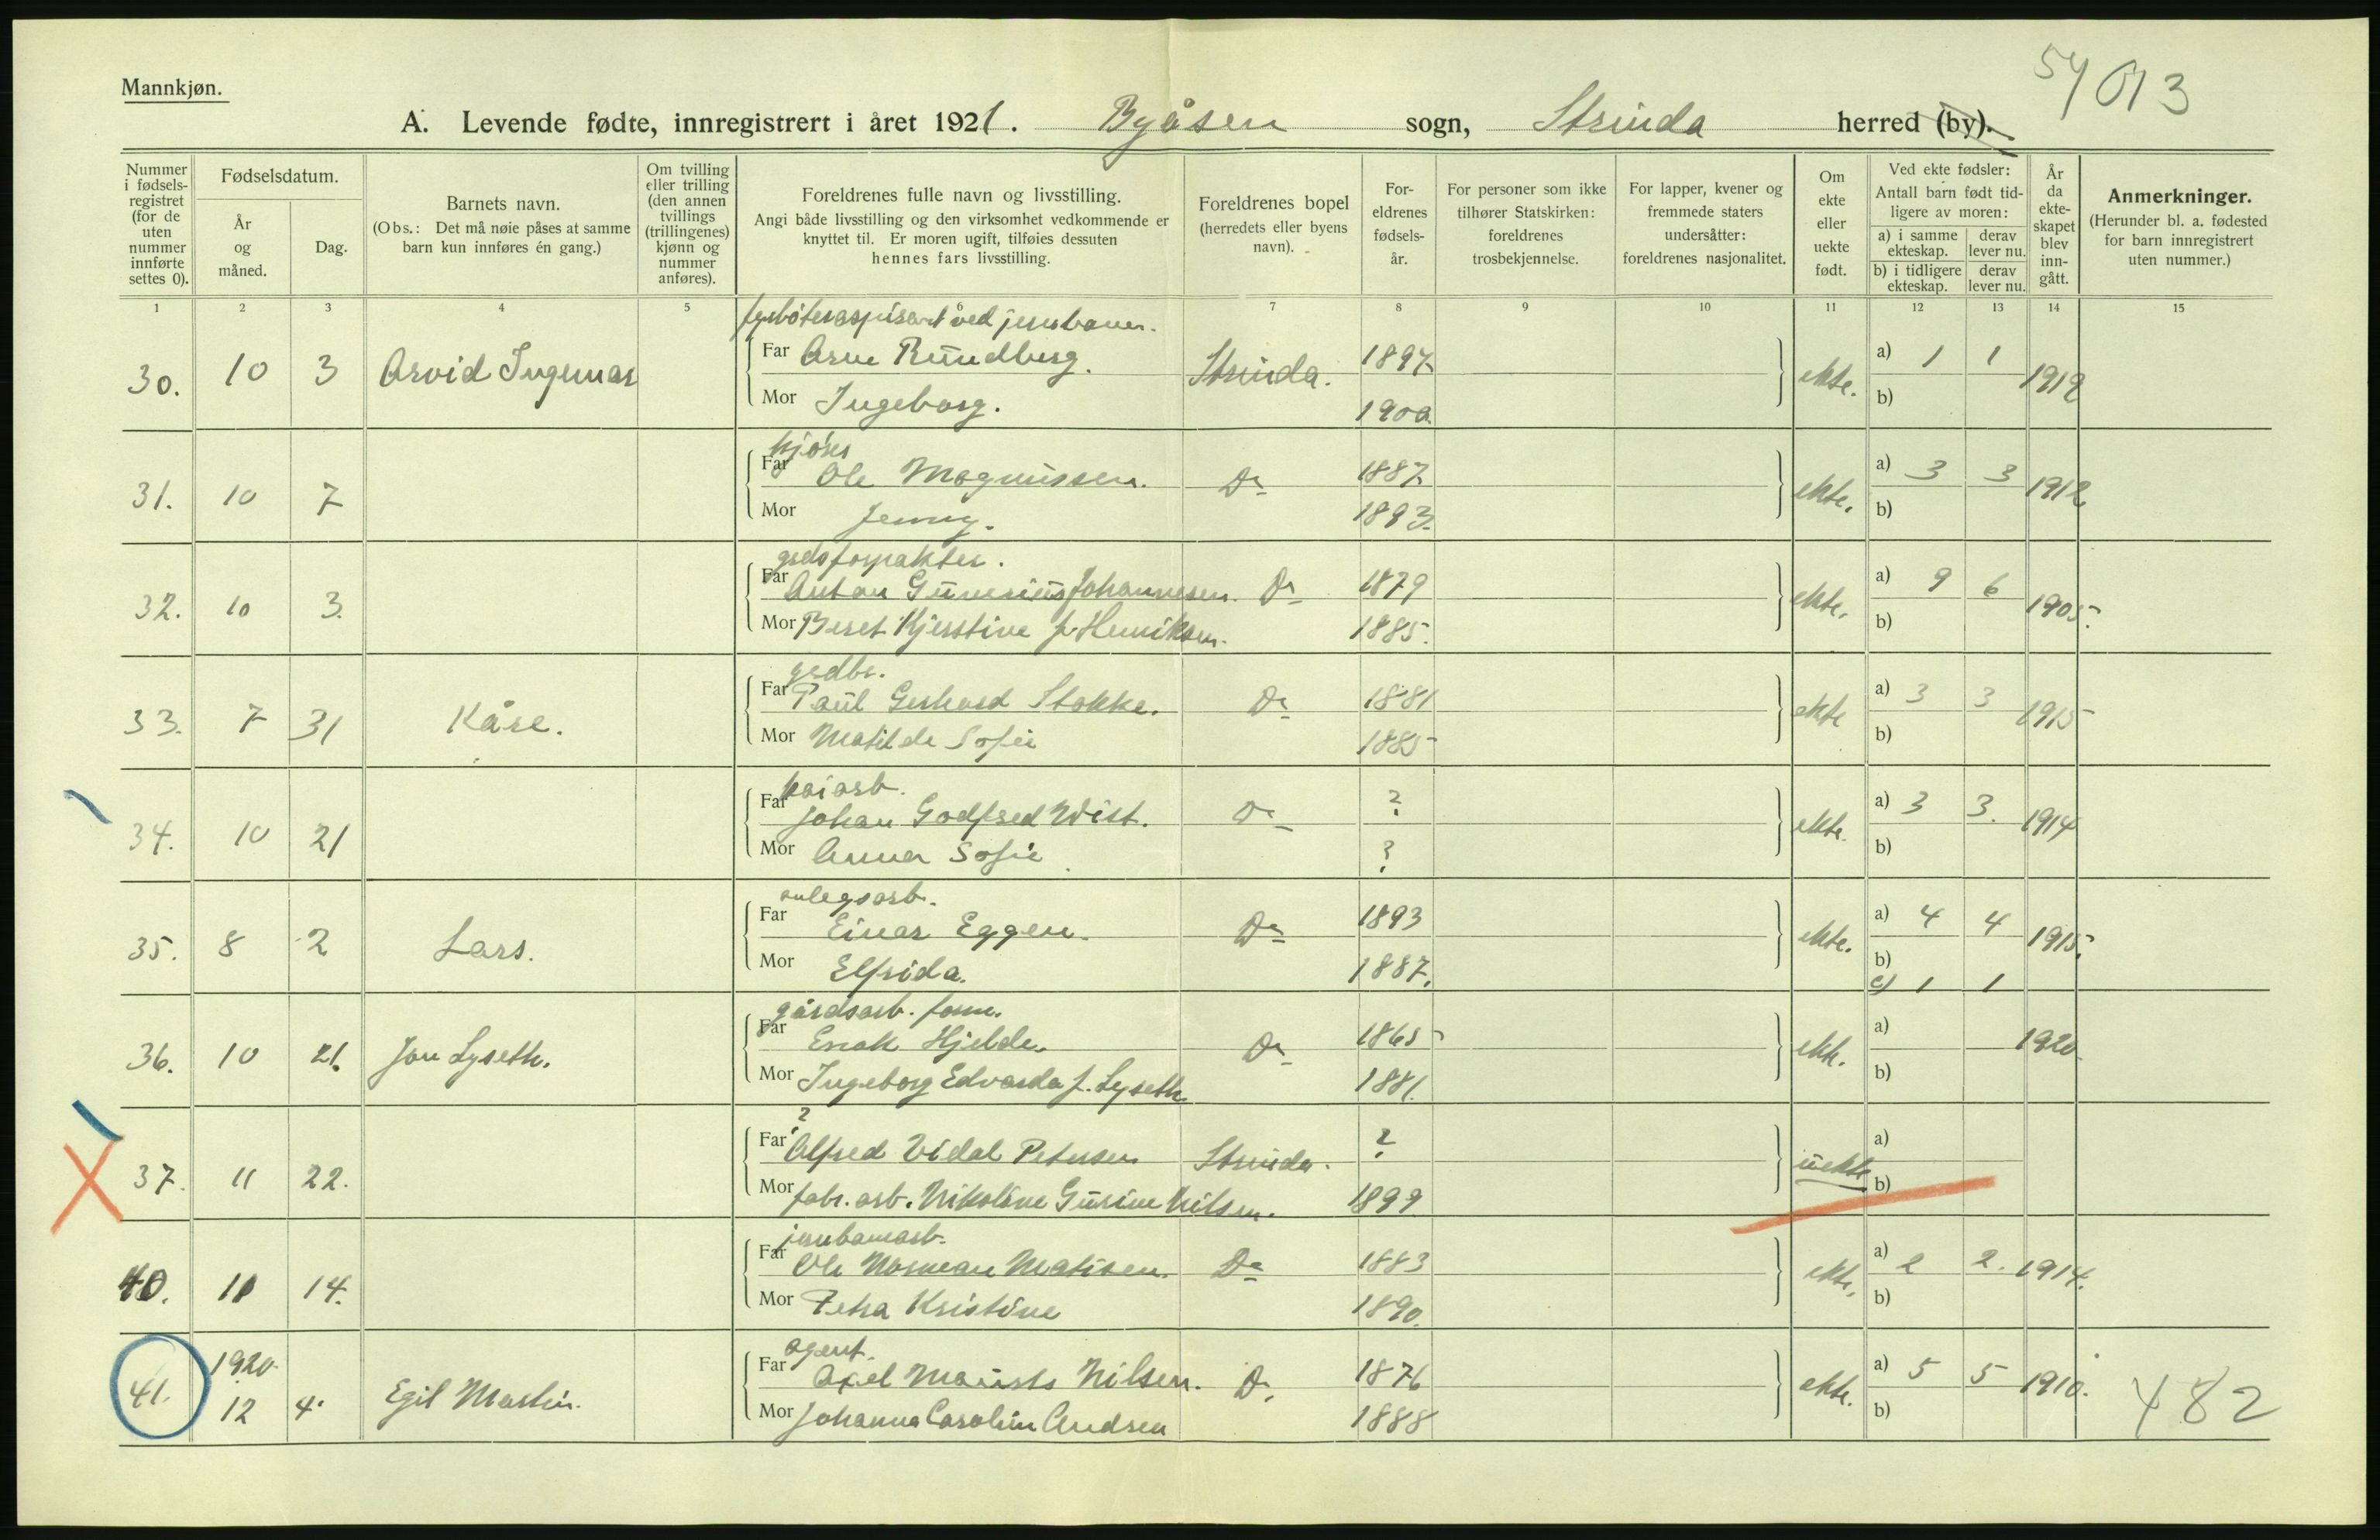 54 013
Mannkjøn.
A. Levende fødte, innregistrert i året 1921. Byåsen sogn, Strinda herred (by).
Nummer i fødsels-registret (for de uten nummer innførte settes 0).
Fødselsdatum.
År og måned.
Dag.
Barnets navn.
(Obs.: Det må nøie påses at samme barn kun innføres én gang.)
Om tvilling eller trilling (den annen tvillings (trillingenes) kjønn og nummer anføres).
Foreldrenes fulle navn og livsstilling.
Angi både livsstilling og den virksomhet vedkommende er knyttet til. Er moren ugift, tilføies dessuten hennes fars livsstilling.
Foreldrenes bopel (herredets eller byens navn).
For-eldrenes fødsels-år.
For personer som ikke tilhører Statskirken: foreldrenes trosbekjennelse.
For lapper, kvener og fremmede staters undersåtter: foreldrenes nasjonalitet.
Om ekte eller uekte født.
Ved ekte fødsler: Antall barn født tid-ligere av moren:
a) i samme ekteskap. derav lever nu.
b) i tidligere ekteskap. derav lever nu.
År da ekte-skapet blev inn-gått.
Anmerkninger.
(Herunder bl. a. fødested for barn innregistrert uten nummer.)
1 2 3 4 5 6 7 8 9 10 11 12 13 14 15
fyrbøteraspirant ved jernbanen.
30. 10 3 Arvid Ingemar Far Arne Rundberg. Strinda. 1897. ekte. a) 1 1 1919
Mor Ingeborg. 1900. b)
kjører
31. 10 7 Far Ole Magnussen. Do 1887. ekte. a) 3 3 1912
Mor Jenny. 1893. b)
grdsforpakter.
32. 10 3. Far Anton Gunerius Johannesen. Do 1879 ekte. a) 9 6 1905.
Mor Beret Kjerstine f. Henriksen. 1885. b)
grdbr.
33. 7 31 Kåre. Far Paul Gerhard Stokke. Do 1881 ekte a) 3 3 1915
Mor Matilde Sofie 1885 b)
kaiarb.
34. 10 21 Far Johan Godfred Wist. Do ? ekte. a) 3 3. 1914
Mor Anna Sofie ? b)
anlegsarb.
35. 8 2 Lars. Far Einar Eggen. Do 1893 ekte. a) 4 4 1915.
Mor Elfrida. 1887. b)
c) 1 1
gårdsarb. form.
36. 10 21. Jon Lyseth. Far Enok Hjelde. Do 1865 ekte. a) 1920
Mor Ingeborg Edvarda f. Lyseth 1881. b)
?
37. 11 22. Far Alfred Vidal Petersen Strinda. ? uekte a)
Mor fabr. arb. Nikoline Gurine Nilsen. 1899 b)
jernbanearb.
40. 11 14. Far Ole Norman Matisen. Do 1883 ekte. a) 2 2. 1914.
Mor Petra Kristine 1890. b)
agent.
41. 1920 12 4. Egil Martin. Far Axel Maurits Nilsen. Do 1876 ekte. a) 5 5 1910.
Mor Johanna Carolin Andsen 1888 b)
482